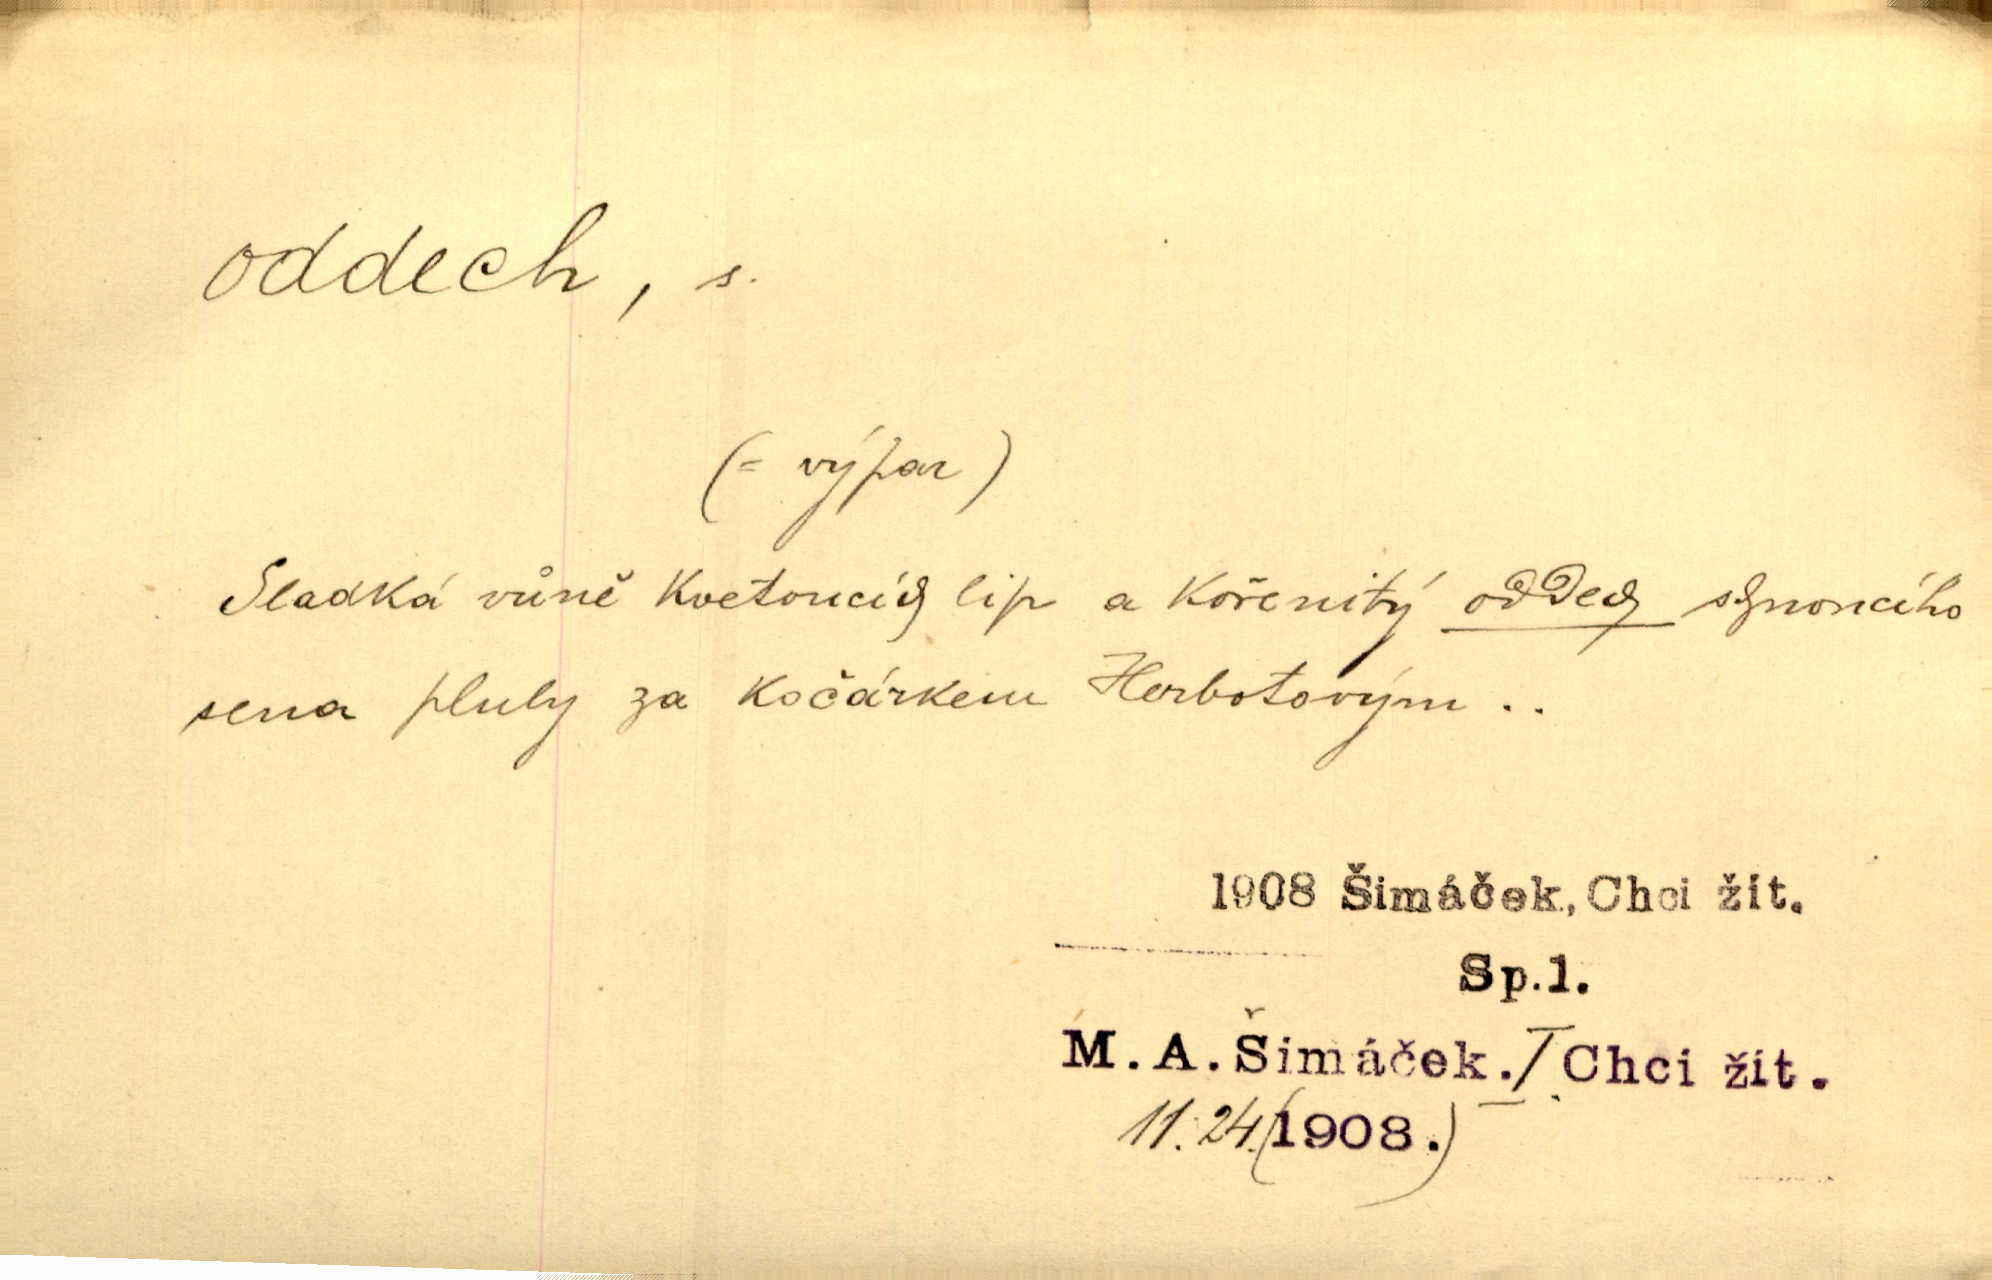 oddech, s.
(= výpar)
Sladká vůně kvetoucích lip a kořenitý oddech schnoucího
sena pluly za kočárkem Herbotovým ..
1908 Šimáček, Chci žít.
Sp.1.
M.A.Šimáček. I. Chci žít.
11.24.(1908.)